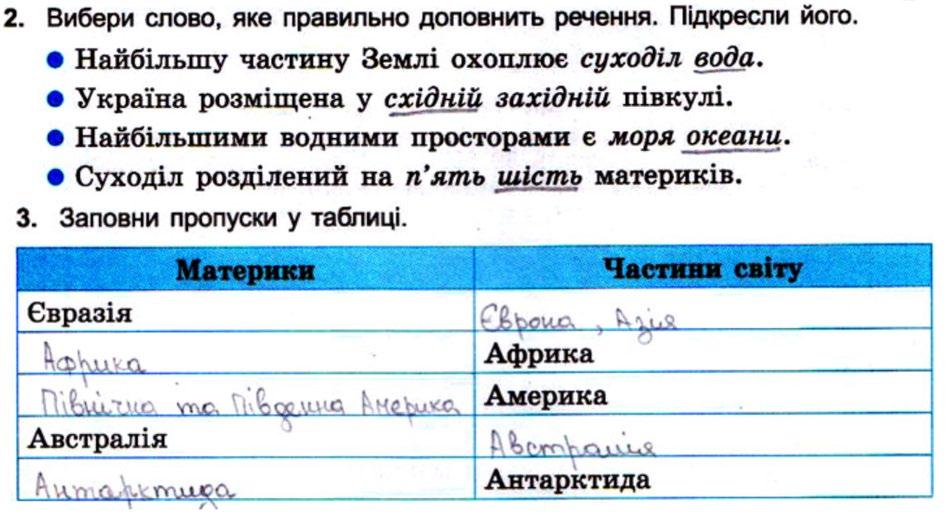 2. Вибери слово, яке правильно доповнить речення. Підкресли його.
● Найбільшу частину Землі охоплює суходіл вода.
● Україна розміщена у східній західній півкулі.
● Найбільшими водними просторами є моря океани.
● Суходіл розділений на п'ять шість материків.
3. Заповни пропуски у таблиці.
Материки Частини світу
Євразія Європа, Азія
Африка Африка
Північна та Південна Америка Америка
Австралія Австралія
Антарктида Антарктида